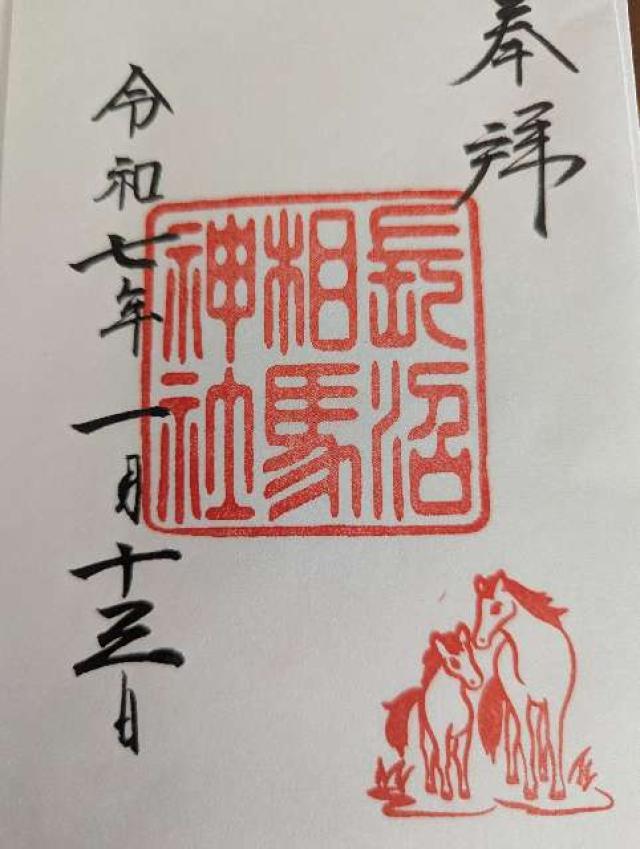 奉拝
長沼
相馬
神社
令和七年一月十三日